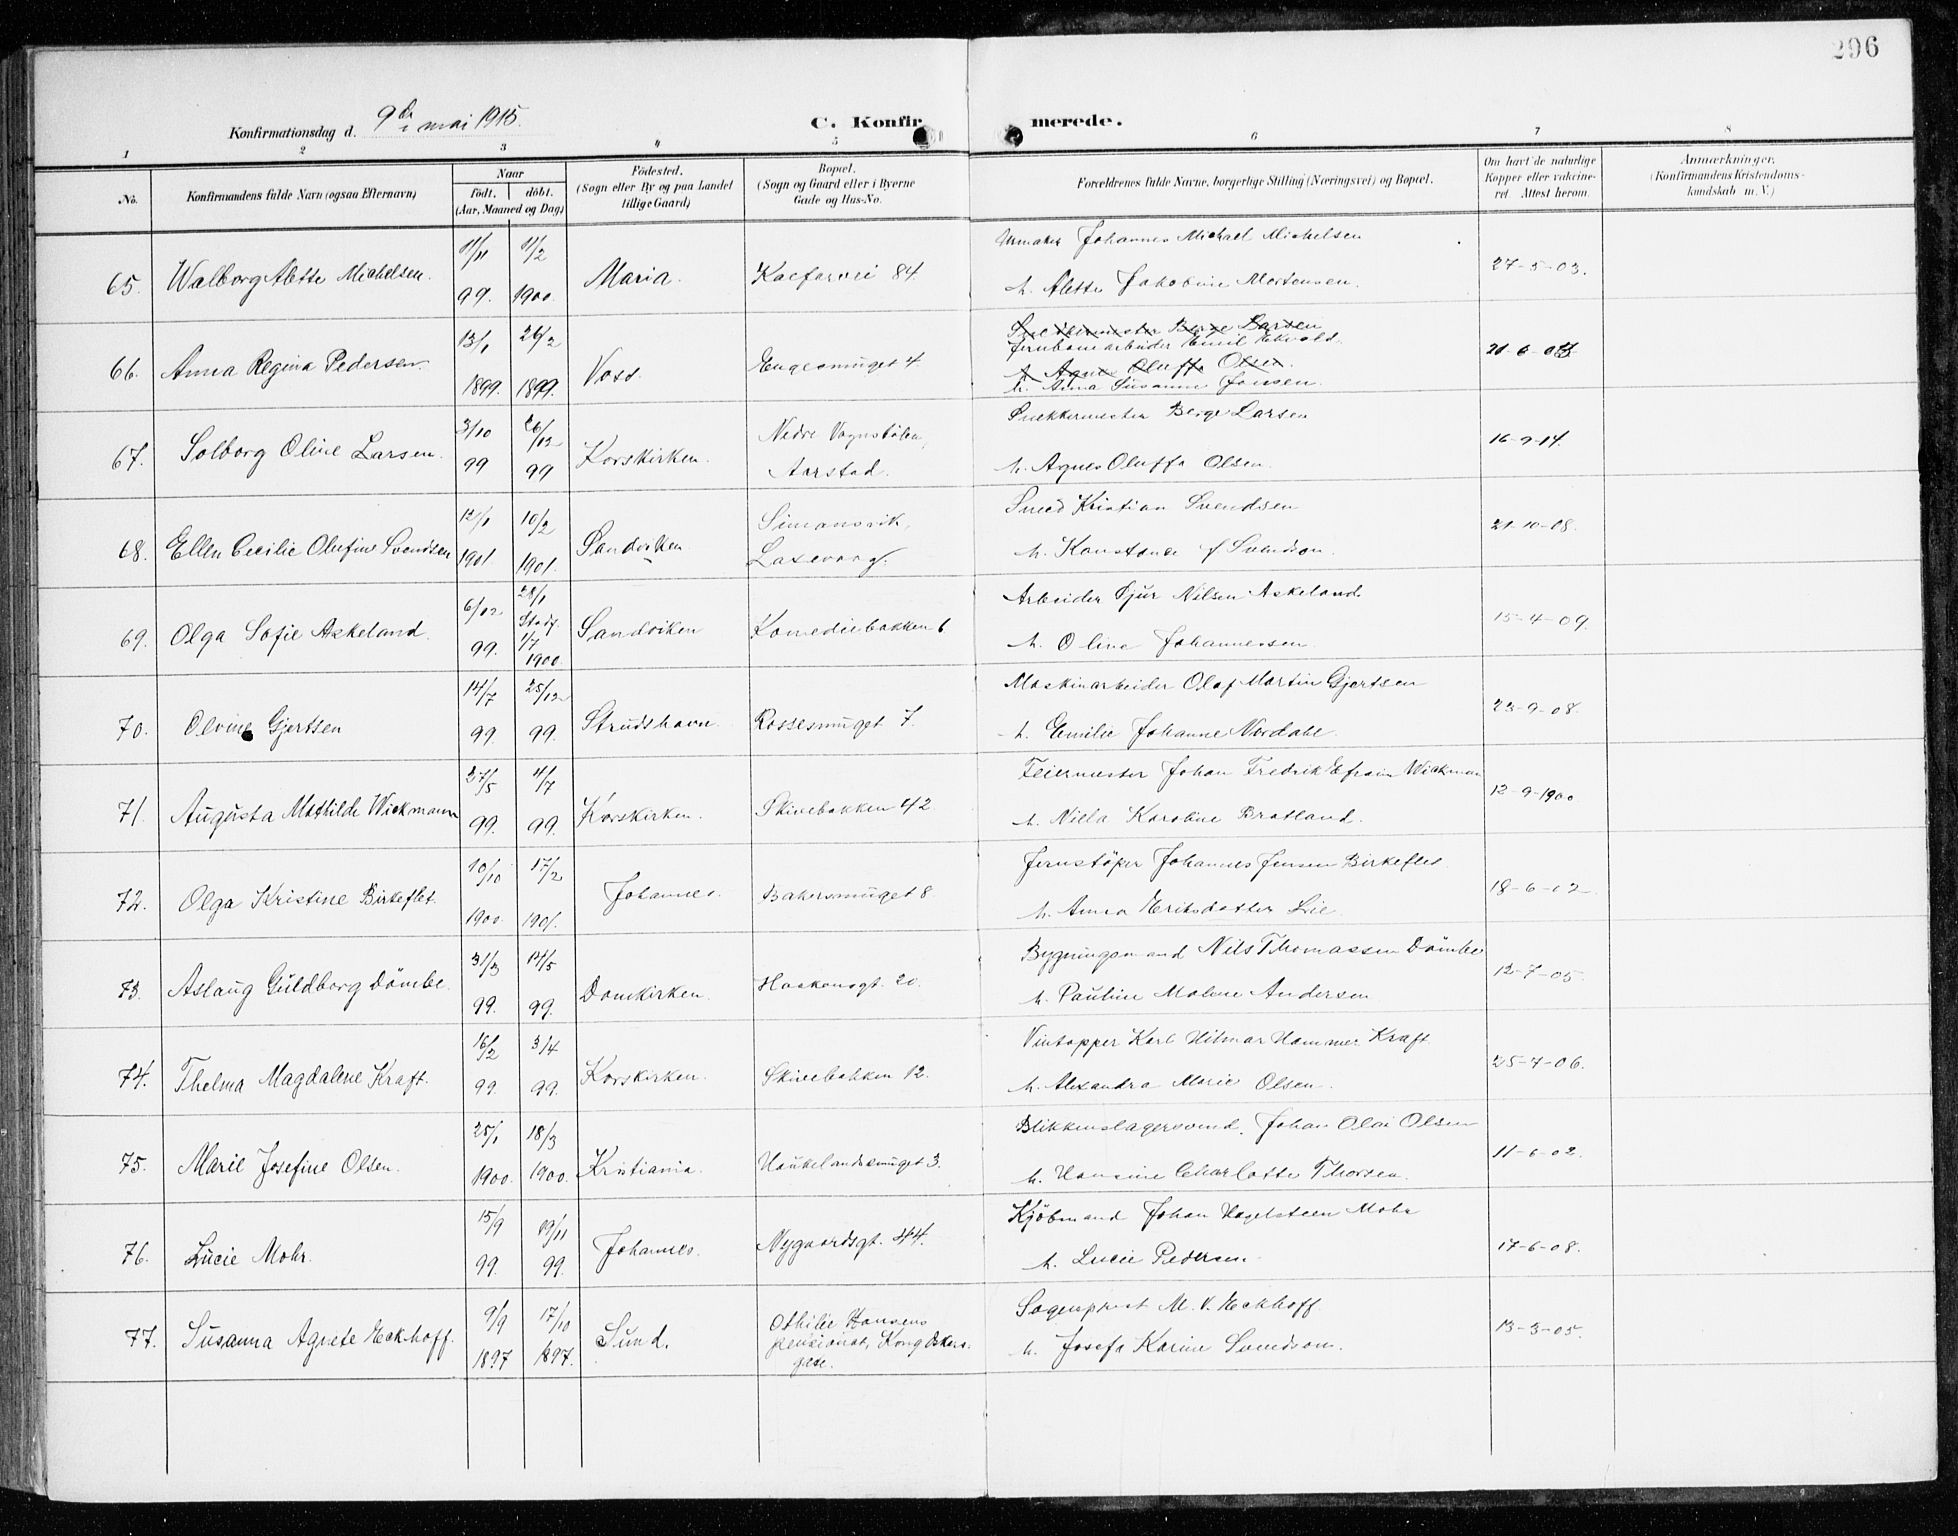 296
Konfirmationsdag d. 9de mai 1915.
C. Konfirmerede.
1 2 3 4 5 6 7 8
No. Konfirmandens fulde Navn (ogsaa Efternavn) Naar født. døbt. (Aar, Maaned og Dag) Fødested. (Sogn eller By og paa Landet tillige Gaard) Bopæl. (Sogn og Gaard eller i Byerne Gade og Hus-No. Forældrenes fulde Navne, borgerlige Stilling (Næringsvei) og Bopæl. Om havt de naturlige Kopper eller vaccineret. Attest herom. Anmærkninger. (Konfirmandens Kristendomskundskab m. V.)
65. Walborg Alette Michelsen. 11/11 99. 11/2 1900. Maria. Kalfarvei 84 Urmaker Johannes Michael Michelsen
h. Alette Jakobine Mortensen. 27-5-03.
66. Anna Regina Pedersen. 13/1 1899. 26/2 1899. Voss. Engesmuget 4. Snekkermester Berge Larsen
Jernbanearbeider Emil Ekvold.
h. Agnes Oluffa Olsen.
h. Anna Susanne Jonsen. 21-6-03
67. Solborg Oline Larsen. 3/10 99 26/12 99 Korskirken. Nedre Vognstølen, Aarstad. Snekkermester Berge Larsen
h. Agnes Oluffa Olsen. 16-9-14.
68. Ellen Cecilie Olufine Svendsen 12/1 1901. 10/2 1901. Sandviken Simonsvik, Laxevaag. Smed Kristian Svendsen
h. Konstance f. Svendsen. 21-10-08.
69. Olga Sofie Askeland. 6/12 99. 28/1 Stadf. 1/7 1900. Sandviken Komediebakken 6 Arbeider Sjur Nilsen Askeland.
h. Oline Johannessen. 15-4-09.
70. Olvine Gjertsen 14/7 99. 25/12 99. Strudshavn. Rossesmuget 7. Maskinarbeider Olaf Martin Gjertsen
h. Emilie Johanne Nordahl. 23-9-08.
71. Augusta Mathilde Wickmann 27/5 99. 4/7 99. Korskirken. Skivebakken 42 Feiermester Johan Fredrik Efraim Wickman
h. Nilla Karoline Bratland. 12-9-1900
72. Olga Kristine Birkeflet. 10/10 1900. 17/2 1901. Johannes. Bakersmuget 8 Jernstøper Johannes Jensen Birkeflet.
h. Anna Eriksdatter Lie. 18-6-02.
73. Aslaug Guldborg Dömbe. 31/3 99. 14/5 99. Domkirken. Haakonsgt. 20. Bygningsmand Nils Thomassen Dömbe
h. Pauline Malene Andersen 12-7-05.
74. Thelma Magdalene Kraft. 16/2 99. 3/4 99. Korskirken. Skivebakken 12. Vintapper Karl Hilmar Hammer Kraft.
h. Alexandra Marie Olsen. 25-7-06.
75. Marie Josefine Olsen. 25/1 1900. 18/3 1900. Kristiania. Haukelandsmuget 3. Blikkenslagersvend. Johan Olai Olsen
h. Hansine Charlotte Thorsen. 11-6-02.
76. Lucie Mohr. 15/9 99. 19/11 99. Johannes. Nygaardsgt. 44. Kjöbmand Johan Hagelsteen Mohr
h. Lucie Pedersen. 17-6-08.
77. Susanna Agnete Eckhoff. 9/9 1897 17/10 1897. Sund. Othilie Hansens pensionat, Kong Oskars gate. Sogneprest M. V. Eckhoff.
h. Josefa Karine Svendsen. 13-3-05.